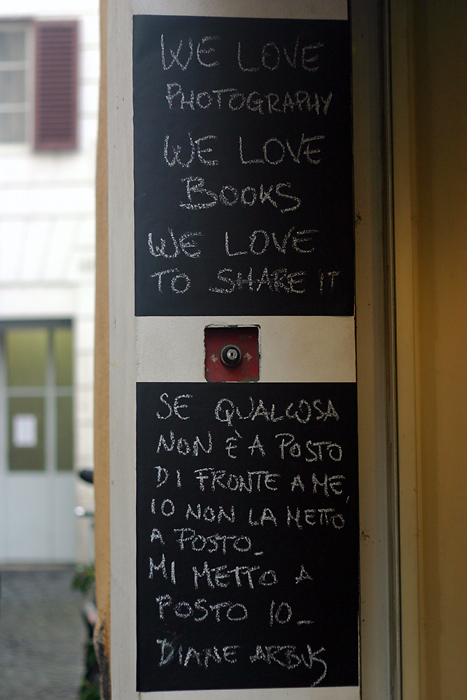 WE LOVE
PHOTOGRAPHY
WE LOVE
BOOKS
WE LOVE
TO SHARE IT
SE QUALCOSA
NON È A POSTO
DI FRONTE A ME,
IO NON LA METTO
A POSTO_
MI METTO A
POSTO IO_
DIANE ARBUS